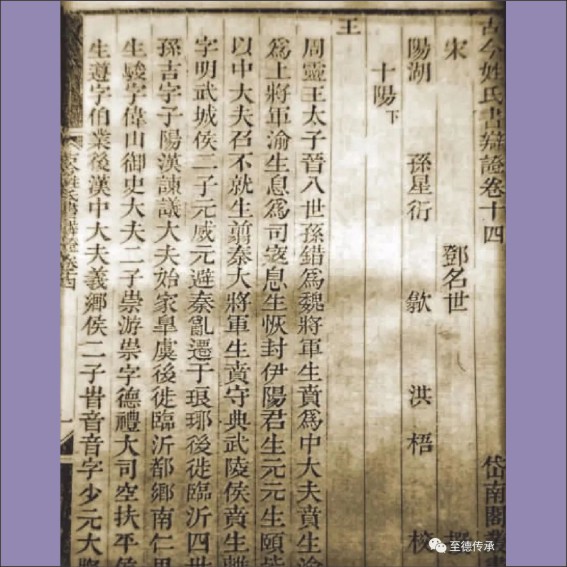 古今姓氏書辯證卷十四 岱南閣
宋 鄧名世
陽湖 孫星衍 歙 洪梧 校
十陽下
王
周靈王太子晉八世孫錯爲魏將軍生賁爲中大夫賁生渝
爲上將軍渝生息爲司寇息生恢封伊陽君生元元生頤
以中大夫召不就生翦秦大將軍生賁守典武陵侯賁生離
字明武城侯二子元威元避秦亂遷于琅琊後徙臨沂四世
孫吉字子陽漢諫議大夫始家皐虞後徙臨沂都鄉南仁里
生駿字偉山御史大夫二子崇游崇字德禮大司空扶平侯
生遵字伯業後漢中大夫義鄉侯二子旹音音字少元大將
至德传承